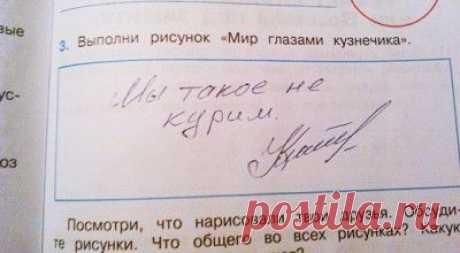 вые
3. Выполни рисунок «Мир глазами кузнечика».
ус-
Мы такое не
курим.
оз
postila.ru
Посмотри, что нарисовали твои друзья. Обсуди-
те рисунки. Что общего во всех рисунках? Какую